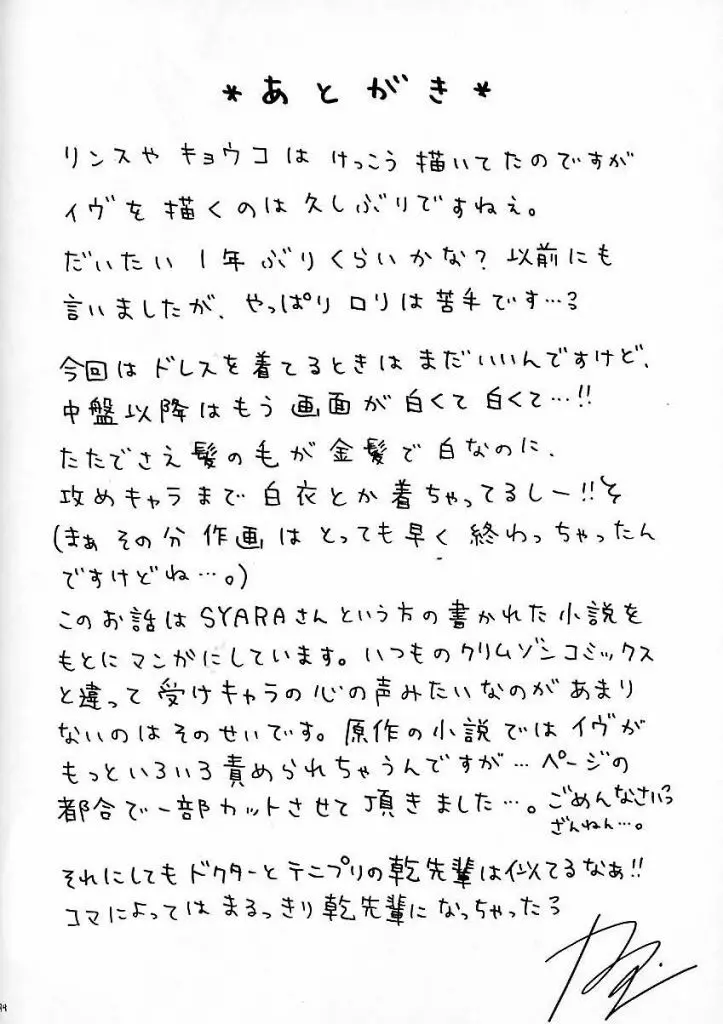 *あとがき*
リンスや キョウコは けっこう 描いてたのですが
イヴを 描くのは 久しぶりですねぇ。
だいたい 1年ぶりくらいかな？ 以前にも
言いましたが、やっぱり ロリは 苦手です…
今回は ドレスを着てるときは まだいいんですけど、
中盤以降はもう 画面が 白くて 白くて…!!
たたでさえ 髪の毛が 金髪で 白なのに、
攻めキャラまで 白衣とか 着ちゃってるしー!!
(まぁ その分 作画は とっても早く 終わっちゃったん
ですけどね…。)
このお話は SYARAさんという方の書かれた小説を
もとにマンガにしています。いつものクリムゾンコミックス
と違って 受けキャラの心の声みたいなのがあまり
ないのは そのせいです。原作の小説では イヴが
もっといろいろ責められちゃうんですが… ページの
都合で一部カットさせて 頂きました…。ごめんなさいっ
ざんねん…。
それにしても ドクターと テニプリの乾先輩は似てるなぁ!!
コマによっては まるっきり 乾先輩に なっちゃった
94